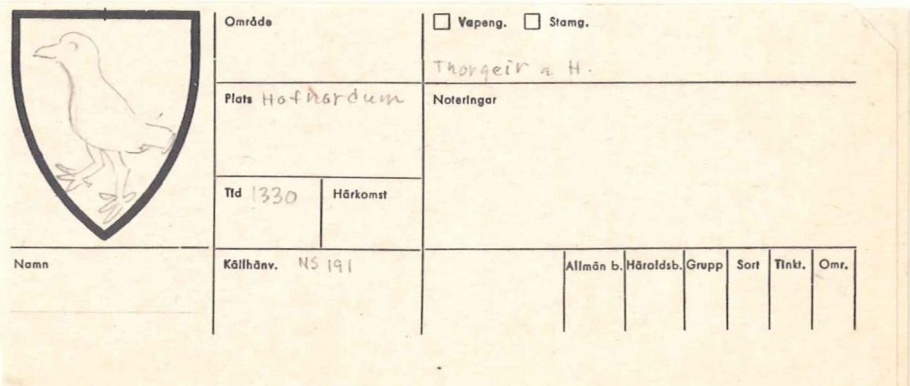 Område
Vapeng. Stamg.
Thorgeir a H.
Plats Hofnordum
Noteringar
Tid 1330
Härkomst
Namn
Källhänv. NS 191
Allmän b. Häroldsb. Grupp Sort Tinkt. Omr.